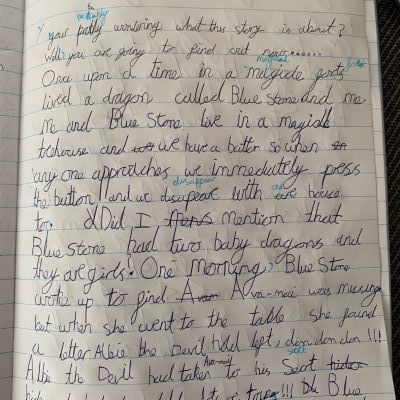 probably
Your pobly wondering what this story is about?
Well you are going to find out now......
magical
Once upon a time in a magicle
lived a dragon called Blue Stone and me.
Me and Blue Stone live in a magicle
treehouse and we have a button so when
any one approaches we immediately press
disappear
the button and we disapeare with are house
to. Did I mention that
Blue Stone had two baby dragons and
they are girls? One morning, Blue Stone
woke up to find Ava-mai was missing
but when she went to the table she found
a letter Albie the Devil had left, dun dun dun!!!
Ava-mai
Albie the Devil had taken to his Secret
Blue